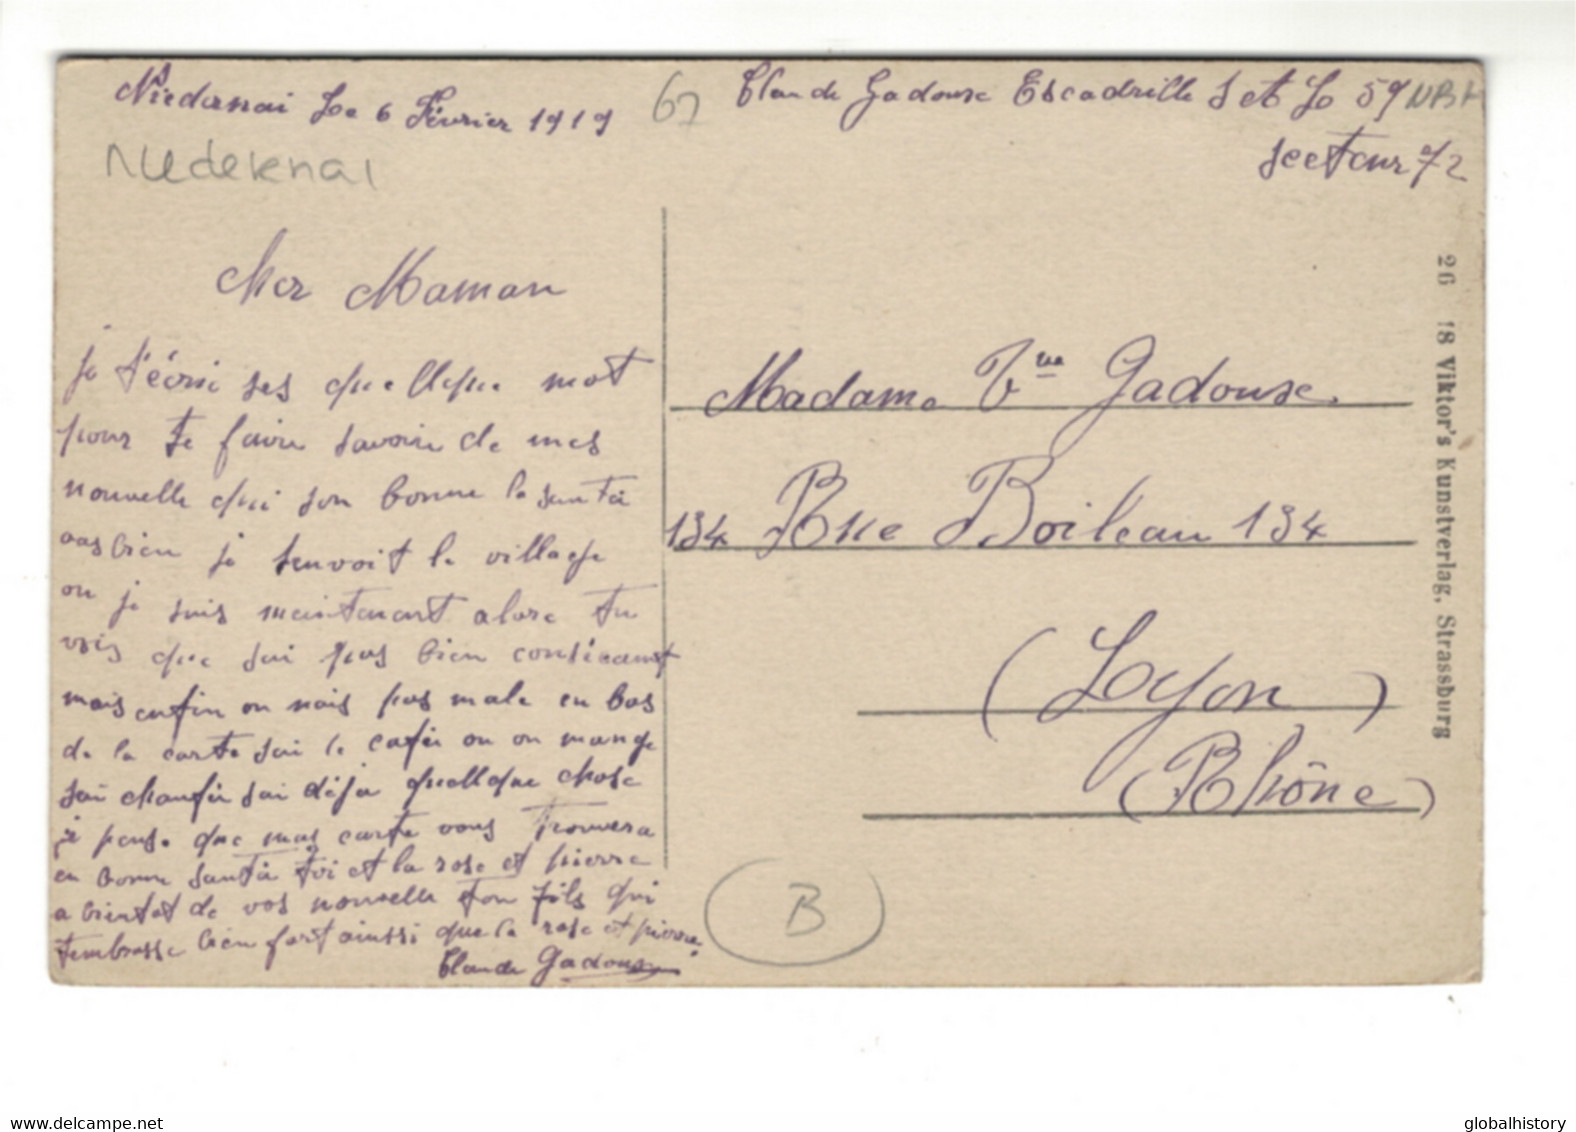 Niedanai Le 6 Février 1919
67
Niedernai
Claude Gadouse Escadrille S et L 59 NBH
secteur 72
Cher Maman
je t'écrie ses quellque mot
pour te faire savoire de mes
nouvelle qui son bonne la santé
aussi bien je tenvoit le village
ou je suis maintenant alore tu
vois que sai pas bien consécant
mais enfin on nais pas male en bas
de la carte sai le cafée ou on mange
sai chaufée sai déja quellque chose
je pense que mas carte vous trouvera
en bonne santé toi et la rose et pierre
a bientot de vos nouvelle ton fils qui
tembrasse bien fort ainssi que la rose et pierre
Claude Gadouse
Madame Vve Gadouse
134 Rue Boileau 134
(Lyon)
(Rhône)
B
26 18 Viktor's Kunstverlag, Strassburg
delcampe.net
globalhistory